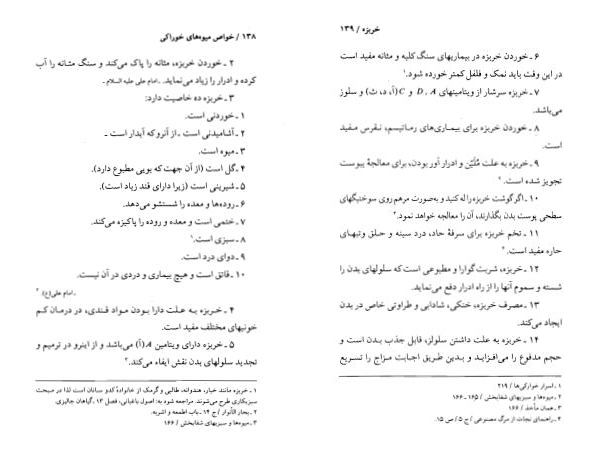 ۱۳۸ / خواص میوه‌های خوراکی
۲ ـ خوردن خربزه، مثانه را پاک می‌کند و سنگ مثانه را آب
کرده و ادرار را زیاد می‌نماید. ـ امام علی علیه السلام ـ
۳ ـ خربزه ده خاصیت دارد:
۱ ـ خوردنی است.
۲ ـ آشامیدنی است ـ از آنرو که آبدار است ـ
۳ ـ میوه است.
۴ ـ گل است (از آن جهت که بویی مطبوع دارد).
۵ ـ شیرینی است (زیرا دارای قند زیاد است).
۶ ـ روده‌ها و معده را شستشو می‌دهد.
۷ ـ ختمی است و معده و روده را پاکیزه می‌کند.
۸ ـ سبزی است.۱
۹ ـ دوای درد است.
۱۰ ـ قاتق است و هیچ بیماری و دردی در آن نیست.
ـ امام علی(ع) ـ ۲
۴ ـ خربزه به علت دارا بودن مواد قندی، در درمان کم
خونیهای مختلف مفید است.
۵ ـ خربزه دارای ویتامین A(آ) می‌باشد و از اینرو در ترمیم و
تجدید سلولهای بدن نقش ایفاء می‌کند.۳
۱ ـ خربزه مانند خیار، هندوانه، طالبی و گرمک از خانوادهٔ کدو سانان است لذا در مبحث
سبزیکاری طرح می‌شوند. مراجعه شود به: اصول باغبانی، فصل ۱۳، گیاهان جالیزی.
۲ ـ بحار الأنوار / ج ۱۴ ـ باب اطعمه و اشربه.
۳ ـ میوه‌ها و سبزیهای شفابخش / ۱۶۶
خربزه / ۱۳۹
۶ ـ خوردن خربزه در بیماریهای سنگ کلیه و مثانه مفید است
در این وقت باید نمک و فلفل کمتر خورده شود.۱
۷ ـ خربزه سرشار از ویتامینهای D ، A و C(آ، د، ث) و سلولز
می‌باشد.
۸ ـ خوردن خربزه برای بیماری‌های رماتیسم، نقرس مفید
است.
۹ ـ خربزه به علت مُلَیّن و ادرار آور بودن، برای معالجهٔ یبوست
تجویز شده است.۲
۱۰ ـ اگر گوشت خربزه را له کنید و به‌صورت مرهم روی سوختگیهای
سطحی پوست بدن بگذارند، آن را معالجه خواهد نمود.۳
۱۱ ـ تخم خربزه برای سرفهٔ حاد، درد سینه و حلق وتبهای
حاره مفید است.۴
۱۲ ـ خربزه، شربت گوارا و مطبوعی است که سلولهای بدن را
شسته و سموم آنها را از راه ادرار دفع می‌نماید.
۱۳ ـ مصرف خربزه، خنکی، شادابی و طراوتی خاص در بدن
ایجاد می‌کند.
۱۴ ـ خربزه به علت داشتن سلولز، قابل جذب بدن است و
حجم مدفوع را می‌افزاید و بدین طریق اجابت مزاج را تسریع
۱ ـ اسرار خوارکی‌ها / ۲۱۹
۲ ـ میوه‌ها و سبزیهای شفابخش / ۱۶۵ ـ ۱۶۶
۳ ـ همان مأخذ / ۱۶۶
۴ ـ راهنمای نجات از مرگ مصنوعی / ج ۵ / ص ۱۵.